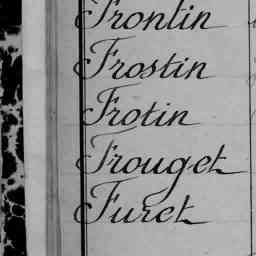 Frontin
Frostin
Frotin
Frouget
Furet